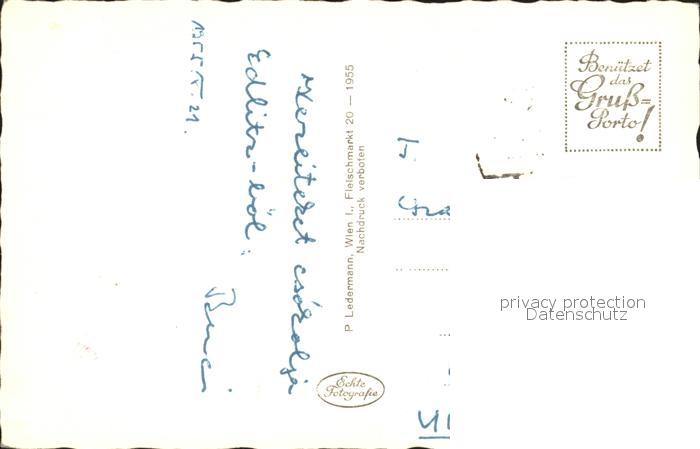 1955.IV.21.
Edlitz-ből:
csókolja
P. Ledermann, Wien I., Fleischmarkt 20 — 1955
Nachdruck verboten
Echte
Fotografie
Benützet
das
Gruß=
Porto!
privacy protection
Datenschutz